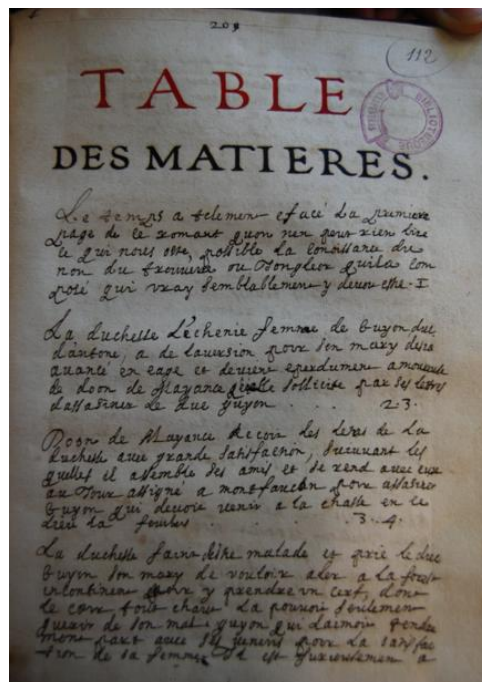 209
112
TABLE
DES MATIERES.
Le temps a telement efacé La premiere
page de ce romant quon nen peut rien lire
ce qui nous oste, possible la conoissance du
non du trouverre ou Jongleor quila com
posé qui vray semblablement y devoit estre. I
La duchesse femme de Guyon duc
dantone, a de laversion pour son mary desia
avancé en eage et devient eperdument amoureuse
de doon de Mayance quelle sollicite par ses lettres
dassasiner le duc guyon . . . 2.3.
Doon de Mayance recoit les letres de La
duchesse avec grande satisfaction, suivant les
quelles il assemble ses amis et se rend avec eux
au Jour assigné a montfaucon pour assasiner
Guyon qui devoit venir a la chasse en ce
. . . 3.4.
La duchesse faint estre malade et prie le duc
Guyon son mary de vouloir aler a la forest
incontinent pour y prendre un cerf, dont
le cœur tout chaut La pouvoit seulement
guerir de son mal. guyon qui laimoit tendre
ment part avec ses veneurs pour la satisfac
tion de sa femme, Il est furieusement a